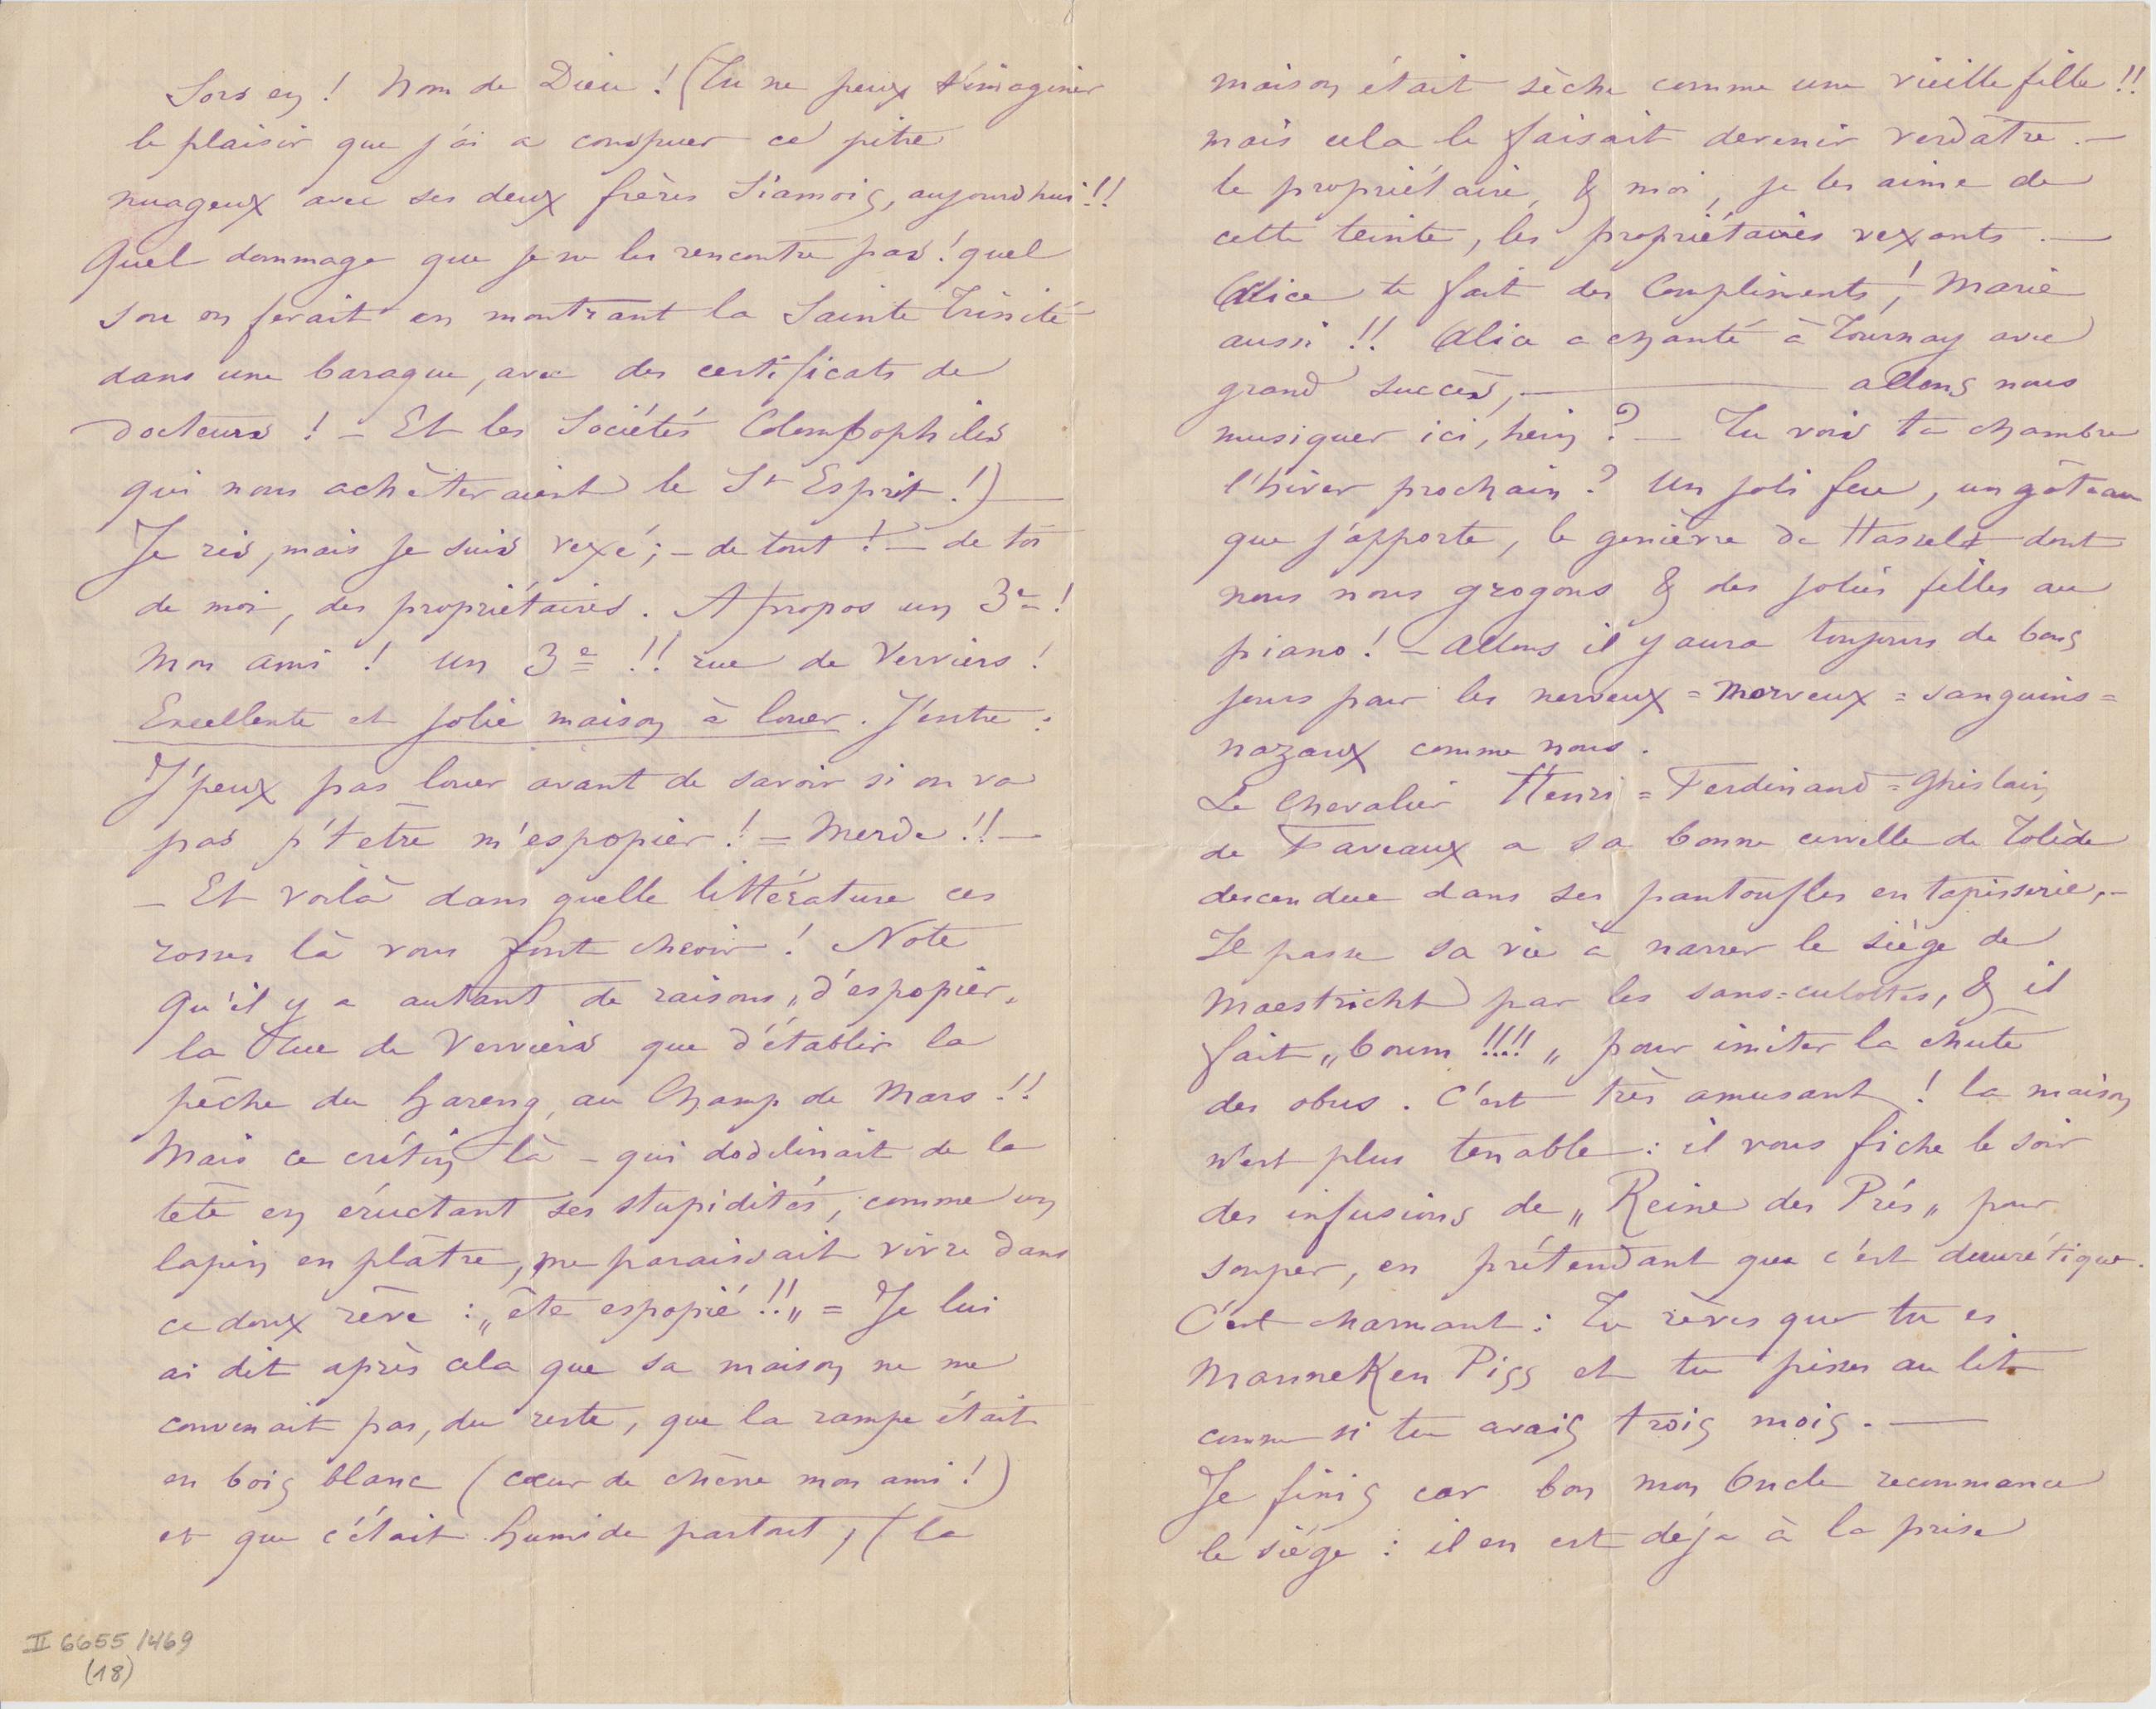 Sors en ! Nom de Dieu ! (Tu ne peux t'imaginer
le plaisir que j'ai a conspuer ce pitre
nuageux avec ses deux frères Siamois, aujourdhui !!
Quel dommage que je ne les rencontre pas ! quel
sou on ferait en montrant la Sainte Trinité
dans une baraque, avec des certificats de
docteurs ! – Et les Sociétés Colombophiles
qui nous achèteraient le St Esprit !) —
Je ris, mais je suis vexé ; – de tout ! – de toi
de moi, des propriétaires. A propos un 3e !
Mon ami ! Un 3e !! rue de Verviers !
Excellente et jolie maison à louer. J'entre :
J'peux pas louer avant de savoir si on va
pas p't'etre m'espopier ! = Merde !! —
– Et voilà dans quelle littérature ces
rosses là vous font cheoir ! Note
Qu'il y a autant de raisons „d'espopier„
la Rue de Verviers que d'établir la
pêche du hareng, au Champ de Mars !!
Mais ce crétin là – qui dodelinait de la
tête en éructant ses stupidités, comme un
lapin en plâtre, me paraissait vivre dans
ce doux rêve : „ête espopié !!„ = Je lui
ai dit après cela que sa maison ne me
convenait pas, du reste, que la rampe était
en bois blanc (cœur de chêne mon ami !)
et que c'était humide partout, (la
II 6655/469
(18)
maison était sèche comme une vieille fille !!
mais cela le faisait devenir verdâtre. —
le propriétaire, & moi, je les aime de
cette teinte, les propriétaires vexants. —
Alice te fait des Compliments ! Marie
aussi !! Alice a chanté à Tournay avec
grand succès, — allons nous
musiquer ici, hein ? – Tu vois ta chambre
l'hiver prochain ? Un joli feu, un gâteau
que j'apporte, le genièvre de Hasselt dont
nous nous grogons & des jolies filles au
piano ! – Allons il y aura toujours de bons
jours pour les nerveux = morveux = sanguins =
nazaux comme nous.
Le Chevalier Henri = Ferdinand = Ghislain
de Faveaux a sa bonne cervelle de Tolède
descendue dans ses pantoufles en tapisserie, –
Il passe sa vie à narrer le siège de
Maestricht par les sans=culottes, & il
fait „boum !!!! „ pour imiter la chute
des obus. C'est très amusant ! la maison
n'est plus tenable : il vous fiche le soir
des infusions de „Reine des Prés„ pour
souper, en prétendant que c'est diurétique.
C'est charmant : Tu rèves que tu es
Manneken Piss et tu pisses au lit
comme si tu avais trois mois. —
Je finis car bon mon Oncle recommence
le siége : il en est déja à la prise